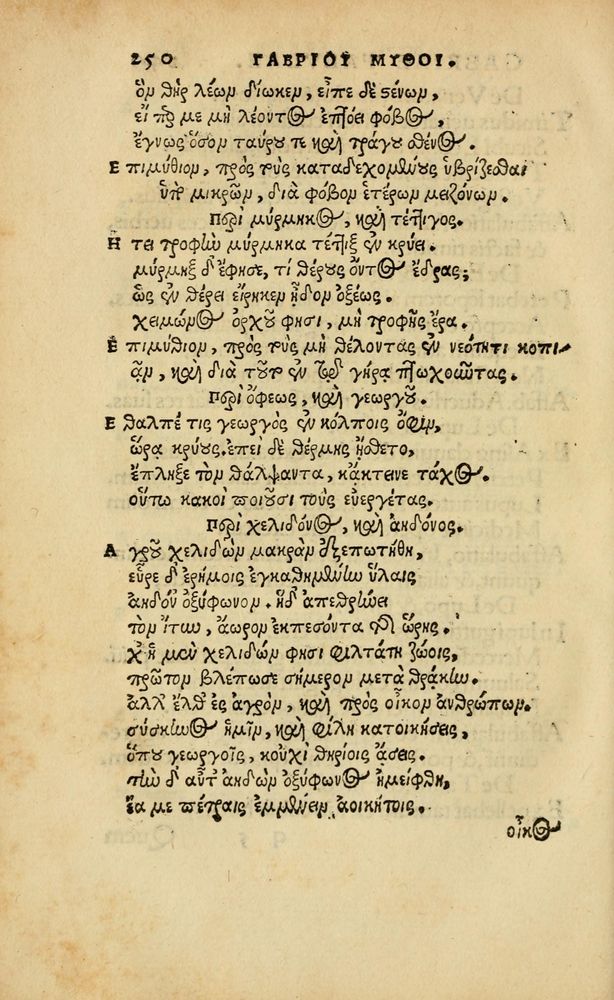 250 ΓΑΒΡΙΟΥ ΜΥΘΟΙ.
ὃν θὴρ λέων δίωκεν, εἶπε δὲ στένων,
εἰ γάρ με μὴ λέοντος ἐπτόει φόβος,
ἔγνως ὅσον ταύρου τε καὶ τράγου σθένος.
Ἐπιμύθιον, πρὸς τοὺς καταδεχομένους ὑβρίζεσθαι
ὑπὸ μικρῶν, διὰ φόβον ἑτέρων μειζόνων.
Περὶ μύρμηκος, καὶ τέττιγος.
Ητει τροφὴν μύρμηκα τέττιξ ἐν κρύει.
μύρμηξ δ' ἔφησε, τί θέρους ὄντος ἔδρας;
ὡς ἐν θέρει εἴρηκεν ᾖδον ὀξέως.
χειμῶνος ὀρχοῦ φησι, μὴ τροφῆς ἔρα.
Ἐπιμύθιον, πρὸς τοὺς μὴ θέλοντας ἐν νεότητι κοπι-
ᾶν, καὶ διὰ τοῦτο ἐν τῷ γήρᾳ πτωχοῦντας.
Περὶ ὄφεως, καὶ γεωργοῦ.
Εθαλπέ τις γεωργὸς ἐν κόλποις ὄφιν,
ὥρᾳ κρύους. ἐπεὶ δὲ θέρμης ᾔσθετο,
ἔπληξε τὸν θάλψαντα, κἄκτεινε τάχος.
οὕτω κακοὶ ποιοῦσι τοὺς εὐεργέτας.
Περὶ χελιδόνος, καὶ ἀηδόνος.
Αγροῦ χελιδὼν μακρὰν ἐξεπωτήθη,
εὗρε δ' ἐρήμοις ἐγκαθημένην ὕλαις
ἀηδόν' ὀξύφωνον. ἡ δ' ἀπεθρήνει
τὸν ἴτυν, ἄωρον ἐκπεσόντα τῆς ὥρης.
χἠ μὲν χελιδών φησι φιλτάτη ζώοις,
πρῶτον βλέπω σε σήμερον μετὰ θρᾴκην.
ἀλλ' ἔλθ' ἐς ἀγρὸν, καὶ πρὸς οἶκον ἀνθρώπων.
σύσκηνος ἡμῖν, καὶ φίλη κατοικήσεις,
ὅπου γεωργοῖς, κοὐχὶ θηρίοις ᾄσεις.
τὴν δ' αὖτ' ἀηδὼν ὀξύφωνος ἠμείφθη,
ἔα με πέτραις ἐμμένειν ἀοικήτοις.
οἶκος